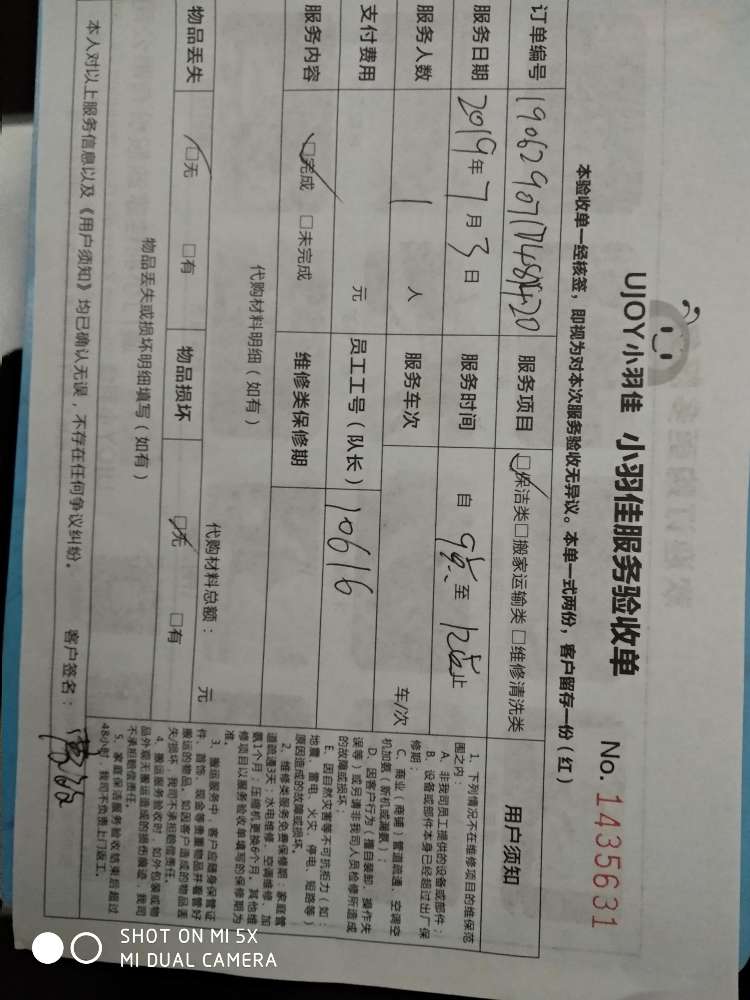 UJOY小羽佳 小羽佳服务验收单
No. 1435631
本验收单一经核签，即视为对本次服务验收无异议。本单一式两份，客户留存一份（红）
订单编号 服务项目 □保洁类□搬家运输类□维修清洗类 用户须知
服务日期 2019年7月3日 服务时间 自 9点 至 12点 止
服务人数 1 人 服务车次 车/次
支付费用 元 员工工号（队长） 10616
服务内容 □完成 □未完成 维修类保修期
代购材料明细（如有）
代购材料总额： 元
物品丢失 □无 □有 物品损坏 □无 □有
物品丢失或损坏明细填写（如有）
本人对以上服务信息以及《用户须知》均已确认无误，不存在任何争议纠纷。 客户签名：
1、下列情况不在维修项目的维保范
围之内：
A、非我司员工提供的设备或部件；
B、设备或部件本身已经超过出厂保
修期；
C、商业（商铺）管道疏通、空调空
机加氨（新机或漏氨）；
D、因客户行为（擅自装卸、操作失
误等）或另请非我司人员检修所造成
的故障或损坏；
E、因自然灾害等不可抗拒力（如：
地震、雷电、火灾、停电、短路等）
原因造成的故障或损坏。
2、维修类服务免费保修期：家庭管
道疏通3天；水电维修、空调维修、加
氨1个月；压缩机更换6个月。其他维
修项目以服务验收单填写的保修期为
准。
3、搬运服务中，客户应随身保管证
件、首饰、现金等贵重物品并看管好
搬运的物品，如因客户造成的物品丢
失/损坏，我司不承担赔偿责任。
4、搬运服务验收时，如外包装或物
品外观无搬运造成的损伤痕迹，我司
不承担赔偿责任。
5、家庭保洁服务验收结束后超过
48小时，我司不负责上门返工。
SHOT ON MI 5X
MI DUAL CAMERA